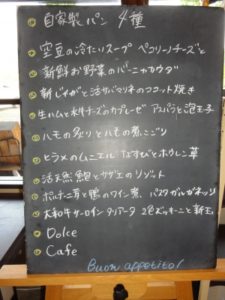 自家製パン 4種
空豆の冷たいスープ ペコリーノチーズと
新鮮お野菜のバーニャカウダ
新じゃがと活サバマキのココット焼き
生ハムと水牛チーズのカプレーゼ アスパラと泡玉子
ハモの炙りとハモの煮こごり
ヒラメのムニエル なすびとホウレン草
活天然鮑とサザエのリゾット
ポルチーニ茸と鴨のワイン煮、パスタガルガネッリ
大和牛サーロインタリアータ 2色ズッキーニと新玉
Dolce
Cafe
Buon appetito!